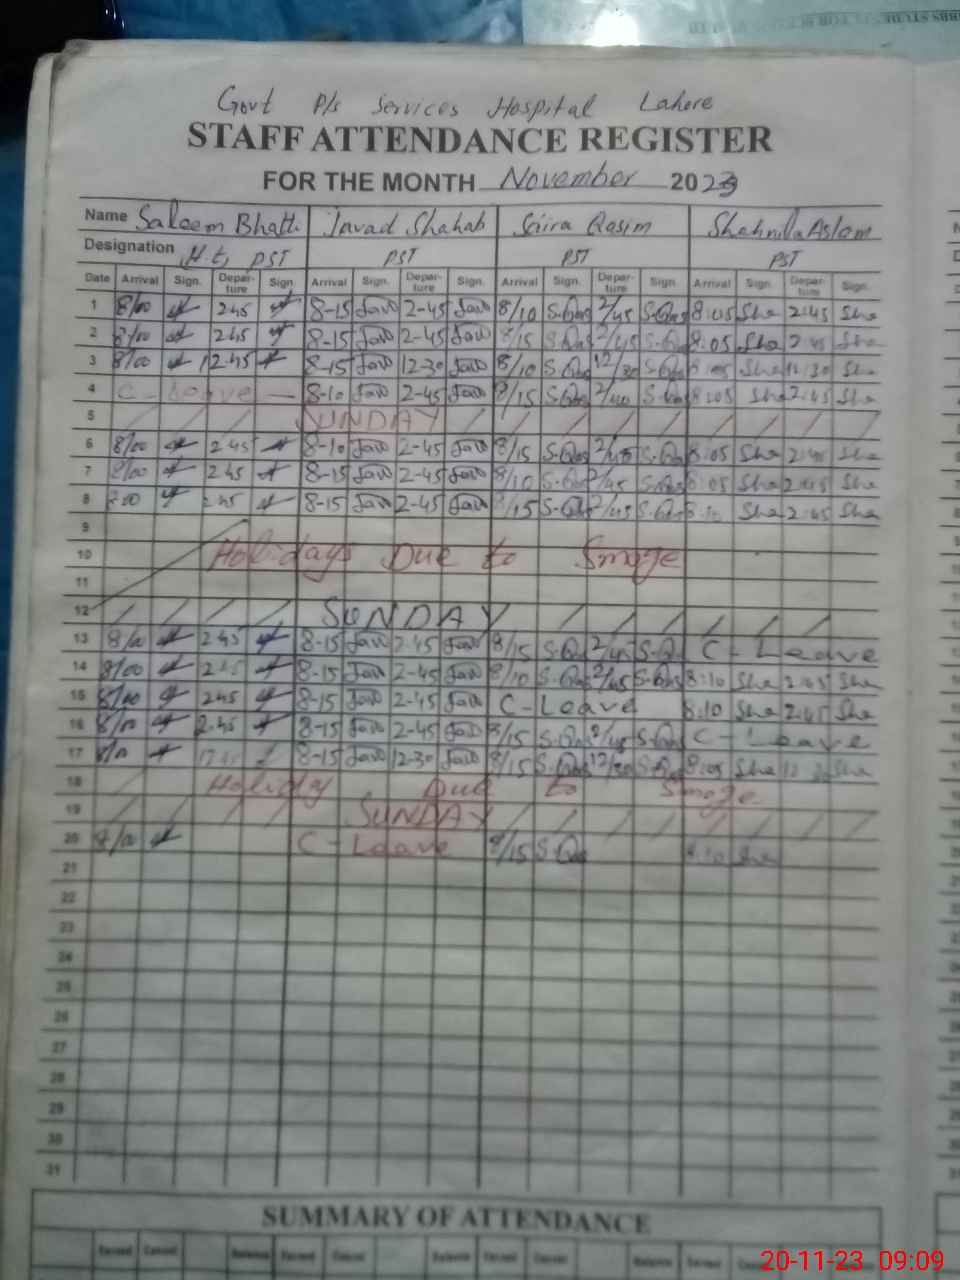 Govt P/s Services Hospital Lahore
STAFF ATTENDANCE REGISTER
FOR THE MONTH November 2023
Name Saleem Bhatti Javad Shahab Saira Qasim Shahnila Aslam
Designation H.t, PST PST PST PST
Date Arrival Sign. Depar-ture Sign. Arrival Sign. Depar-ture Sign. Arrival Sign. Depar-ture Sign. Arrival Sign. Depar-ture Sign.
1 8/00 2 45 8-15 Jav 2-45 Jav 8/10 S.Qas 2/45 S.Qas 8:05 Sha 2:45 Sha
2 8/00 2 45 8-15 Jav 2-45 Jav 8/15 S.Qas 2/45 S.Qas 8:05 Sha 2:45 Sha
3 8/00 12 45 8-15 Jav 12-30 Jav 8/10 S.Qas 12/30 S.Qas 8:05 Sha 12:30 Sha
4 C-Leave 8-10 Jav 2-45 Jav 8/15 S.Qas S.Qas 8:05 Sha 2:45 Sha
5 SUNDAY
6 8/00 2 45 8-10 Jav 2-45 Jav 8/15 S.Qas 2/45 S.Qas 8:05 Sha 2:45 Sha
7 8/00 2 45 8-15 Jav 2-45 Jav 8/10 S.Qas 2/45 S.Qas 8:05 Sha 2:45 Sha
8 2 45 8-15 Jav 2-45 Jav 8/15 S.Qas 2/45 S.Qas 8:10 Sha 2:45 Sha
9
10 Holidays Due to Smoge
11
12 SUNDAY
13 8/00 2 45 8-15 Jav 2-45 Jav 8/15 S.Qas 2/45 S.Qas C-Leave
14 8/00 2 45 8-15 Jav 2-45 Jav 8/10 S.Qas 2/45 S.Qas 8:10 Sha 2:45 Sha
15 8/00 2 45 8-15 Jav 2-45 Jav C-Leave 8:10 Sha 2:45 Sha
16 8/00 2.45 8-15 Jav 2-45 Jav 8/15 S.Qas 2/45 S.Qas C-Leave
17 8/00 8-15 Jav 12-30 Jav 8/15 S.Qas 12/30 S.Qas 8:05 Sha Sha
18 Holidy Due to Smoge
19 SUNDAY
20 8/00 C-Leave 8/15 S.Qas 8:10 Sha
21
22
23
24
25
26
27
28
29
30
31
SUMMARY OF ATTENDANCE
20-11-23 09:09